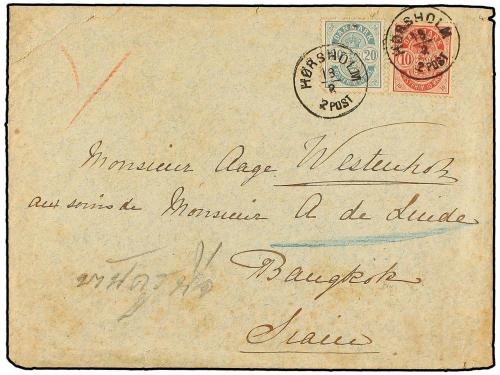 DANMARK
20
10
HØRSHOLM
2 POST
HØRSHOLM
2 POST
Monsieur Aage Westenholz
aux soins de Monsieur A de Linde
Bangkok
Siam